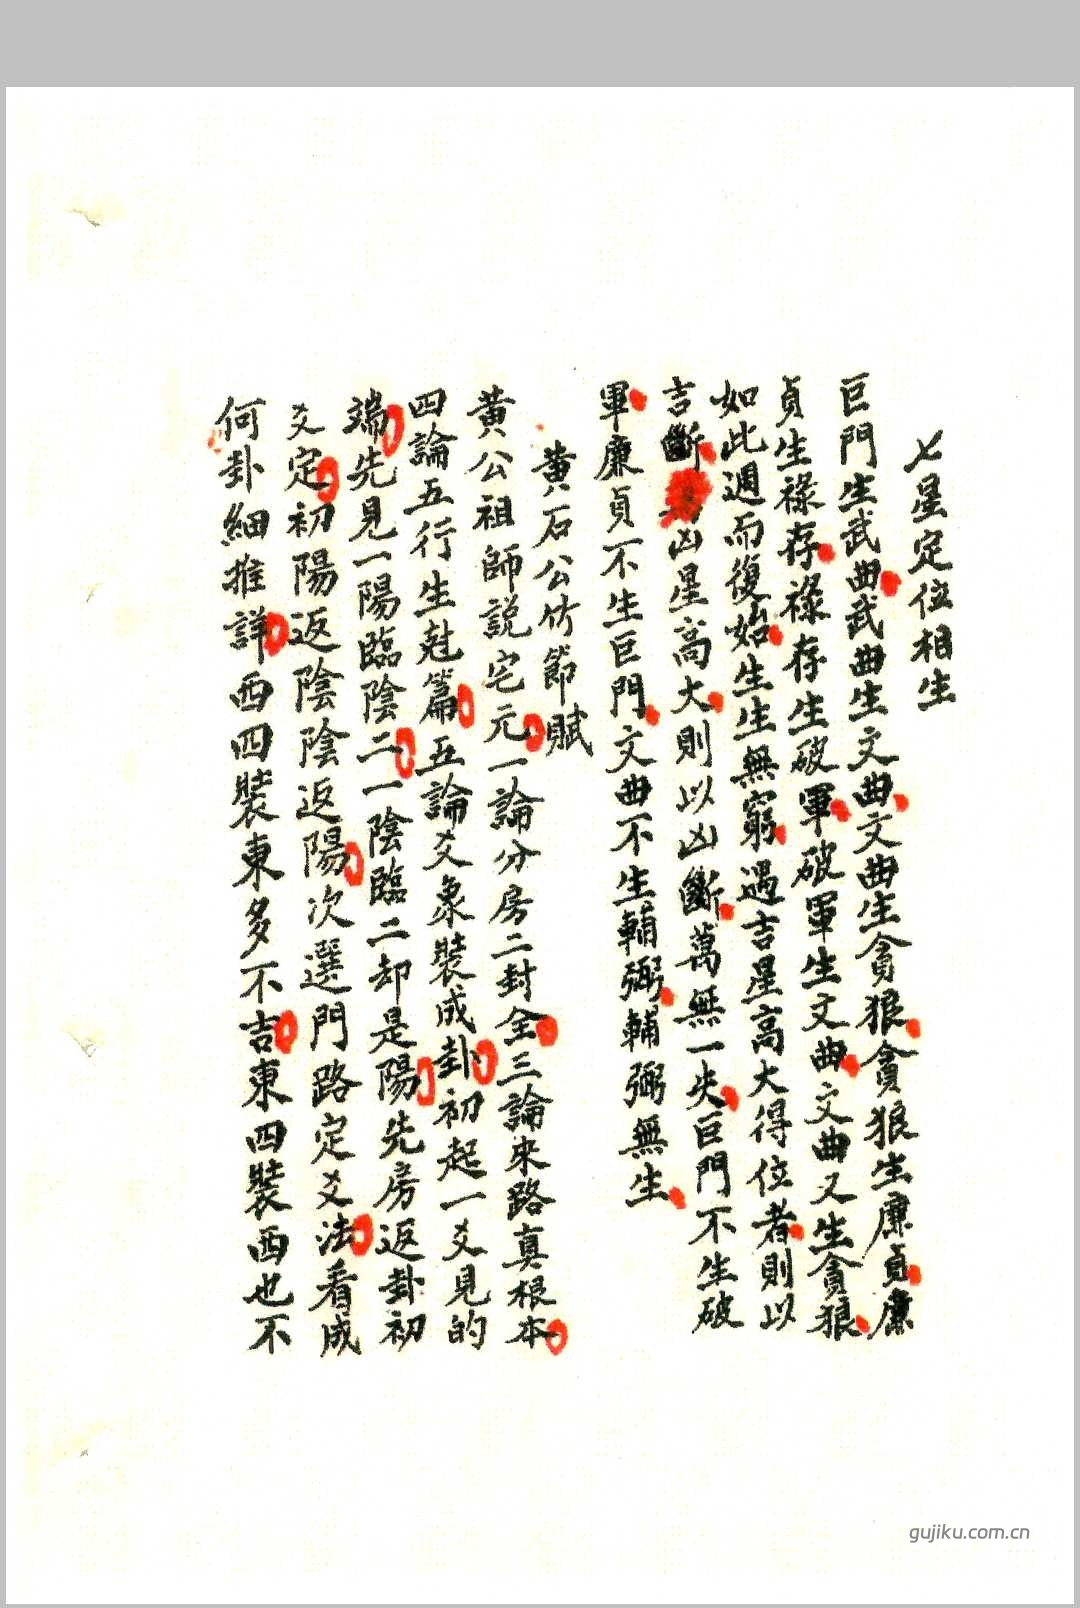 七星定位相生
巨門生武曲武曲生文曲文曲生貪狼貪狼生廉貞廉
貞生祿存祿存生破軍破軍生文曲文曲又生貪狼
如此週而復始生生無窮遇吉星高大得位者則以
吉斷凶星高大則以凶斷萬無一失巨門不生破
軍廉貞不生巨門文曲不生輔弼輔弼無生
黃石公竹節賦
黃公祖師説宅元一論分房二封全三論來路真根本
四論五行生尅篇五論爻象裝成卦初起一爻見的
端先見一陽臨陰二一陰臨二却是陽先房返卦初
爻定初陽返陰陰返陽次選門路定爻法看成
何卦細推詳西四裝東多不吉東四裝西也不
gujiku.com.cn